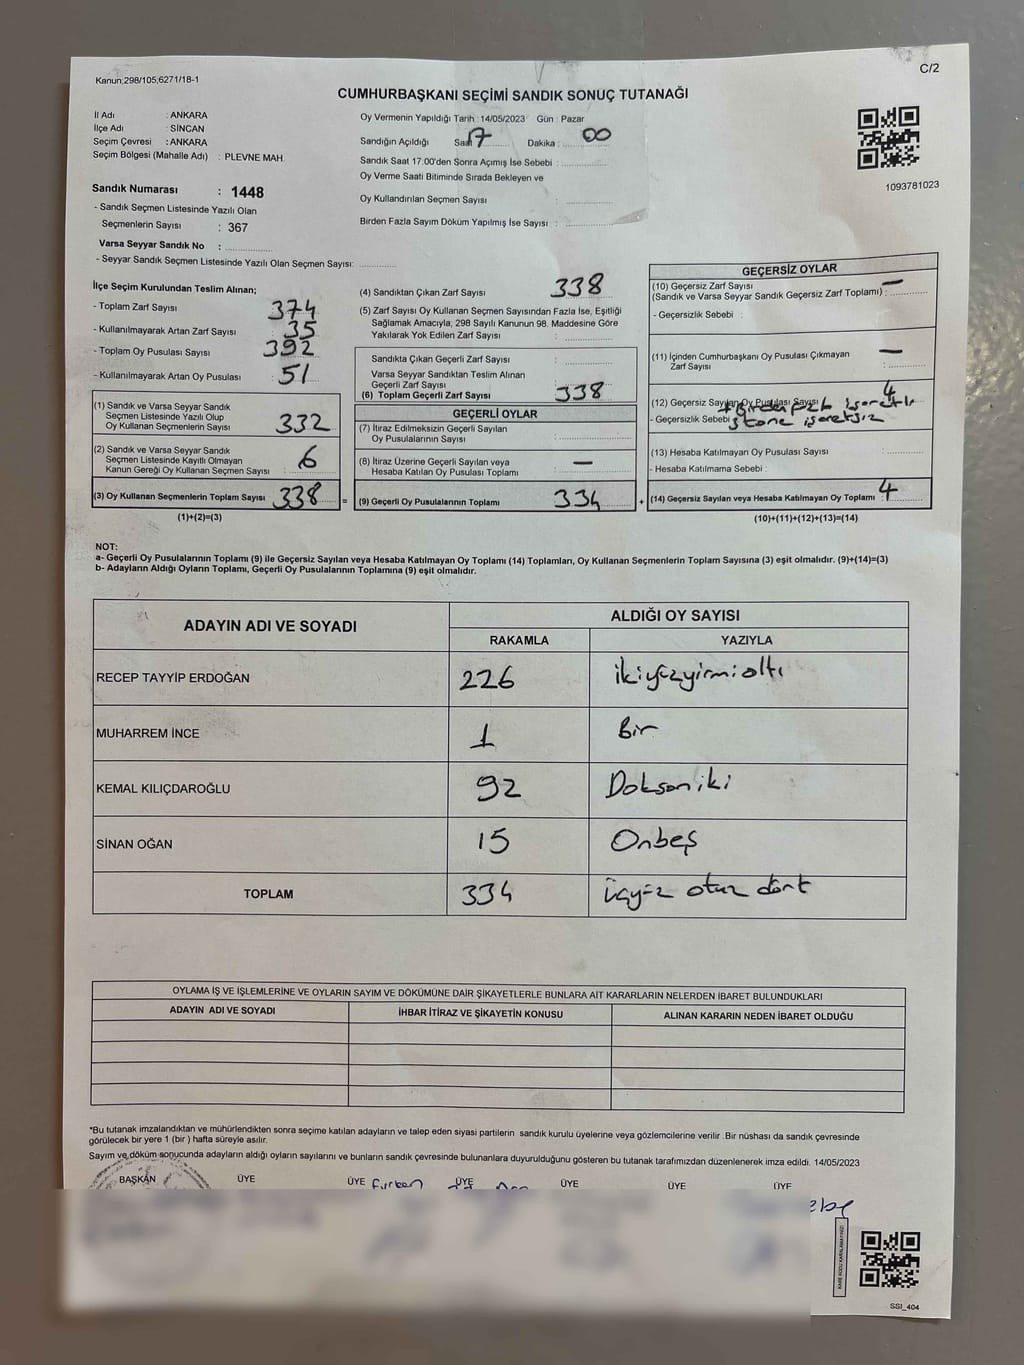 Kanun;298/105,6271/18-1
C/2
CUMHURBAŞKANI SEÇİMİ SANDIK SONUÇ TUTANAĞI
İl Adı : ANKARA
İlçe Adı : SİNCAN
Seçim Çevresi : ANKARA
Seçim Bölgesi (Mahalle Adı) : PLEVNE MAH.
Sandık Numarası : 1448
- Sandık Seçmen Listesinde Yazılı Olan
Seçmenlerin Sayısı : 367
Varsa Seyyar Sandık No :
- Seyyar Sandık Seçmen Listesinde Yazılı Olan Seçmen Sayısı:
Oy Vermenin Yapıldığı Tarih : 14/05/2023 Gün : Pazar
Sandığın Açıldığı Saat 17 Dakika : 00
Sandık Saat 17.00'den Sonra Açımış İse Sebebi :
Oy Verme Saati Bitiminde Sırada Bekleyen ve
Oy Kullandırılan Seçmen Sayısı :
Birden Fazla Sayım Döküm Yapılmış İse Sayısı :
1093781023
İlçe Seçim Kurulundan Teslim Alınan;
- Toplam Zarf Sayısı 374
- Kullanılmayarak Artan Zarf Sayısı : 35
- Toplam Oy Pusulası Sayısı 392
- Kullanılmayarak Artan Oy Pusulası 51
(1) Sandık ve Varsa Seyyar Sandık
Seçmen Listesinde Yazılı Olup
Oy Kullanan Seçmenlerin Sayısı : 332
(2) Sandık ve Varsa Seyyar Sandık
Seçmen Listesinde Kayıtlı Olmayan
Kanun Gereği Oy Kullanan Seçmen Sayısı : 6
(3) Oy Kullanan Seçmenlerin Toplam Sayısı : 338 =
(1)+(2)=(3)
(4) Sandıktan Çıkan Zarf Sayısı 338
(5) Zarf Sayısı Oy Kullanan Seçmen Sayısından Fazla İse, Eşitliği
Sağlamak Amacıyla, 298 Sayılı Kanunun 98. Maddesine Göre
Yakılarak Yok Edilen Zarf Sayısı :
Sandıkta Çıkan Geçerli Zarf Sayısı :
Varsa Seyyar Sandıktan Teslim Alınan
Geçerli Zarf Sayısı :
(6) Toplam Geçerli Zarf Sayısı 338
GEÇERLİ OYLAR
(7) İtiraz Edilmeksizin Geçerli Sayılan
Oy Pusulalarının Sayısı :
(8) İtiraz Üzerine Geçerli Sayılan veya
Hesaba Katılan Oy Pusulası Toplamı : —
(9) Geçerli Oy Pusulalarının Toplamı 334 +
GEÇERSİZ OYLAR
(10) Geçersiz Zarf Sayısı —
(Sandık ve Varsa Seyyar Sandık Geçersiz Zarf Toplamı) :
- Geçersizlik Sebebi :
(11) İçinden Cumhurbaşkanı Oy Pusulası Çıkmayan
Zarf Sayısı : —
(12) Geçersiz Sayılan Oy Pusulası Sayısı 4
- Geçersizlik Sebebi
(13) Hesaba Katılmayan Oy Pusulası Sayısı :
- Hesaba Katılmama Sebebi :
(14) Geçersiz Sayılan veya Hesaba Katılmayan Oy Toplamı : 4
(10)+(11)+(12)+(13)=(14)
NOT:
a- Geçerli Oy Pusulalarının Toplamı (9) ile Geçersiz Sayılan veya Hesaba Katılmayan Oy Toplamı (14) Toplamları, Oy Kullanan Seçmenlerin Toplam Sayısına (3) eşit olmalıdır. (9)+(14)=(3)
b- Adayların Aldığı Oyların Toplamı, Geçerli Oy Pusulalarının Toplamına (9) eşit olmalıdır.
ADAYIN ADI VE SOYADI
ALDIĞI OY SAYISI
RAKAMLA YAZIYLA
RECEP TAYYİP ERDOĞAN 226 ikiyüzyirmialtı
MUHARREM İNCE 1 Bir
KEMAL KILIÇDAROĞLU 92 Doksaniki
SİNAN OĞAN 15 Onbeş
TOPLAM 334 üçyüz otuz dört
OYLAMA İŞ VE İŞLEMLERİNE VE OYLARIN SAYIM VE DÖKÜMÜNE DAİR ŞİKAYETLERLE BUNLARA AİT KARARLARIN NELERDEN İBARET BULUNDUKLARI
ADAYIN ADI VE SOYADI İHBAR İTİRAZ VE ŞİKAYETİN KONUSU ALINAN KARARIN NEDEN İBARET OLDUĞU
*Bu tutanak imzalandıktan ve mühürlendikten sonra seçime katılan adayların ve talep eden siyasi partilerin sandık kurulu üyelerine veya gözlemcilerine verilir. Bir nüshası da sandık çevresinde
görülecek bir yere 1 (bir ) hafta süreyle asılır.
Sayım ve döküm sonucunda adayların aldığı oyların sayılarını ve bunların sandık çevresinde bulunanlara duyurulduğunu gösteren bu tutanak tarafımızdan düzenlenerek imza edildi. 14/05/2023
BAŞKAN ÜYE ÜYE Furkan ÜYE ÜYE ÜYE ÜYE
SSI_404